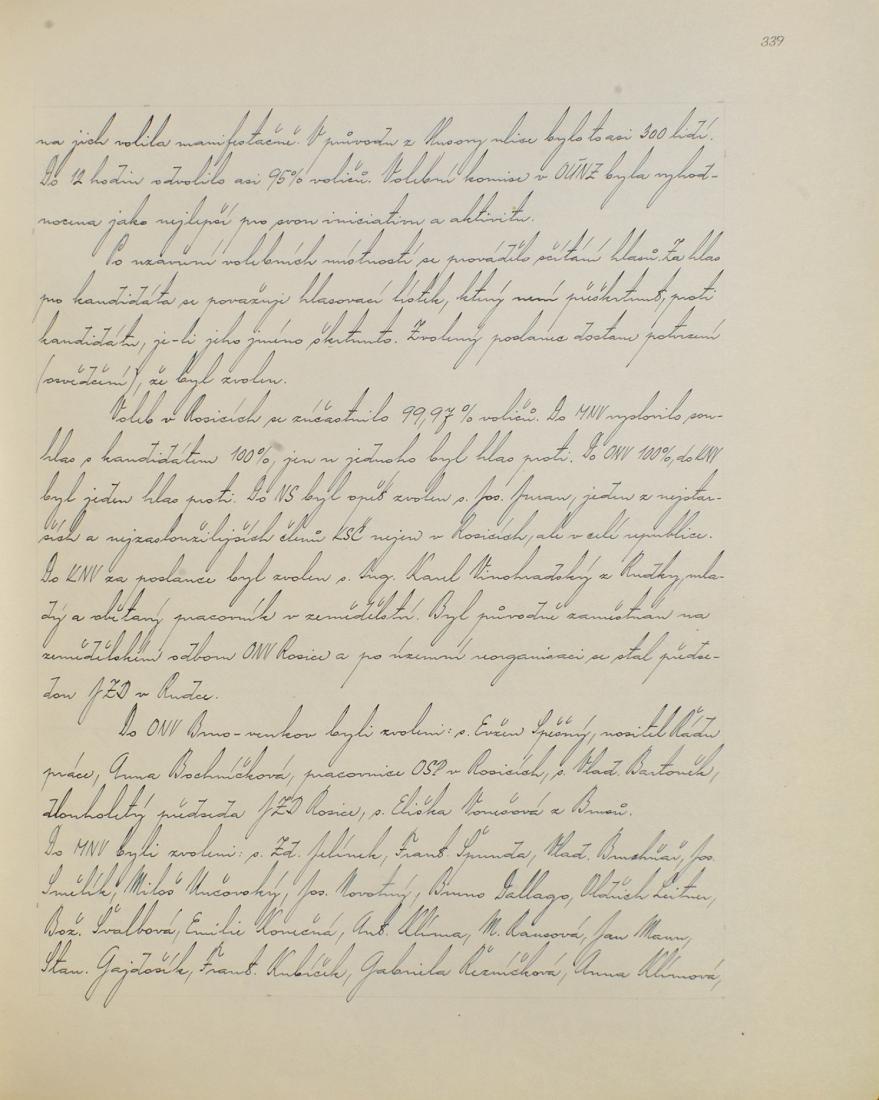 339
na jich volila manifestačně. V průvodu z Husovy ulice bylo to asi 300 lidí.
Do 12 hodin odvolilo asi 95% voličů. Volební komise v OÚNZ byla vyhod-
nocena jako nejlepší pro svou iniciativu a aktivitu.
Po uzavření volebních místností se provádělo sčítání hlasů. Za hlas
pro kandidáta se považuje hlasovací lístek, který není přeškrtnut, proti
kandidátu, je-li jeho jméno škrtnuto. Zvolený poslanec dostane potvrzení
(osvědčení), že byl zvolen.
Voleb v Rosicích se zúčastnilo 99,97 % voličů. Do MNV vyslovilo sou-
hlas s kandidátem 100%, jen u jednoho byl hlas proti. Do ONV 100%, do KNV
byl jeden hlas proti. Do NS byl opět zvolen s. Jos. Juran, jeden z nejstar-
ších a nejzasloužilejších členů KSČ nejen v Rosicích, ale v celé republice.
Do KNV za poslance byl zvolen s. Ing. Karel Vinohradský z Rudky, mla-
dý a obětavý pracovník v zemědělství. Byl původně zaměstnán na
zemědělském odboru ONV Rosice a po územní reorganisaci se stal předse-
dou JZD v Rudce.
Do ONV Brno-venkov byli zvoleni: s. Evžen Spěšný, nositel Řádu
práce, Anna Bochníčková, pracovnice OSP v Rosicích, s. Vlad. Bartoněk,
dlouholetý předseda JZD Rosice, s. Eliška Vonešová z Brna.
Do MNV byli zvoleni: s. Zd. Jelínek, Frant. Špunda, Vlad. Jos.
Smělík, Miloš Jos. Novotný, Bruno Dallago, Oldřich Leitner,
Bož. Švalbová, Emilie Konečná, Ant. Klíma, M. Jan
Stan. Gajdošík, Frant. Kubíček, Gabriela Řezníčková, Anna Klímová,